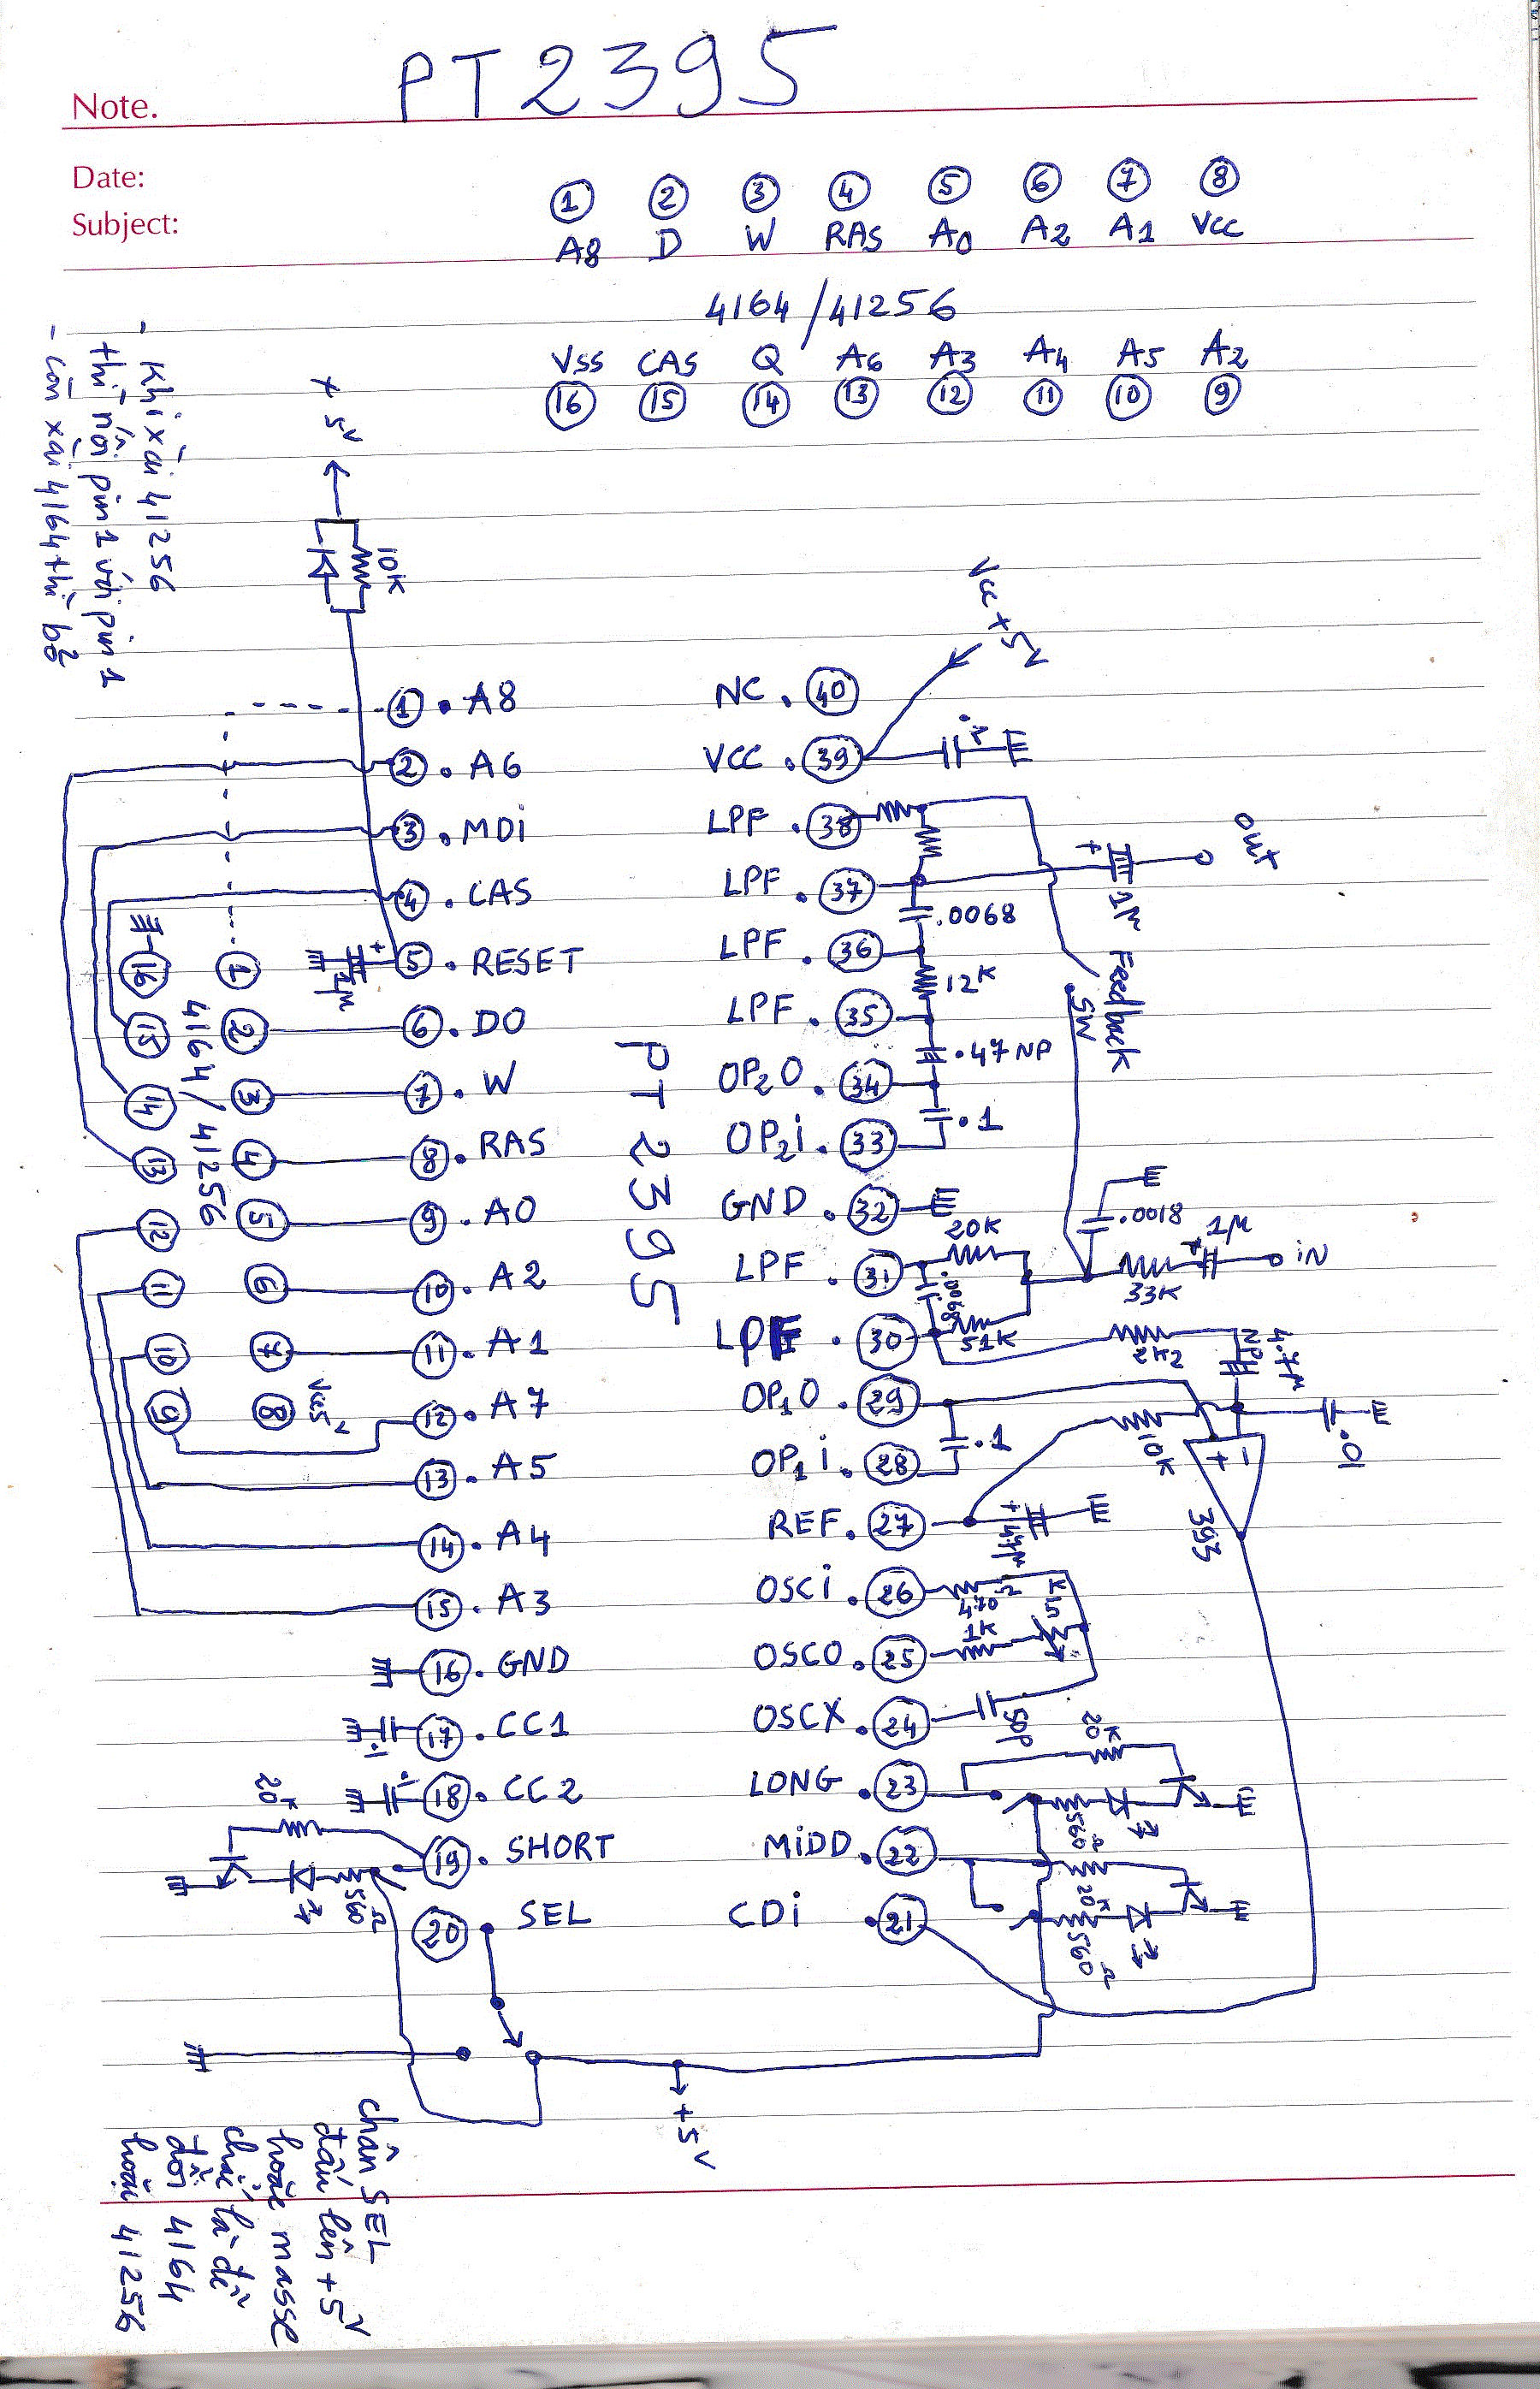 PT2395
Note.
Date:
Subject:
① ② ③ ④ ⑤ ⑥ ⑦ ⑧
A8 D W RAS A0 A2 A1 VCC
4164/41256
VSS CAS Q A6 A3 A4 A5 A2
⑯ ⑮ ⑭ ⑬ ⑫ ⑪ ⑩ ⑨
- Khi xài 41256
thì nối pin 1 với pin 1
- còn xài 4164 thì bỏ
+5V
10K
Vcc +5V
① . A8
② . A6
③ . MDi
④ . CAS
⑤ . RESET
⑥ . DO
⑦ . W
⑧ . RAS
⑨ . A0
⑩ . A2
⑪ . A1
⑫ . A7
⑬ . A5
⑭ . A4
⑮ . A3
⑯ . GND
⑰ . CC1
⑱ . CC2
⑲ . SHORT
⑳ SEL
+ 1µ
⑯ ①
⑮ ②
⑭ ③
⑬ ④
⑫ ⑤
⑪ ⑥
⑩ ⑦
⑨ ⑧ Vcc5V
4164/41256
PT2395
NC . 40
VCC . 39
LPF . 38
LPF . 37
LPF . 36
LPF . 35
OP2O . 34
OP2i . 33
GND . 32
LPF . 31
LPF . 30
OP1O . 29
OP1i . 28
REF . 27
OSCi . 26
OSCO . 25
OSCX . 24
LONG . 23
MiDD . 22
CDi . 21
out
+ 1µ
.0068
12K
Feedback
SW
.47 NP
.1
20K
.0068
51K
.0018
1µ
+
33K
iN
2K2
4.7µ
NP
.1
10K
.01
+ -
393
+ 47µ
470Ω
1K
5K
50P
20K
560Ω
20K
560Ω
.1
20K
560Ω
+5V
chân SEL
đấu lên +5V
hoặc masse
chắc là để
đổi 4164
hoặc 41256